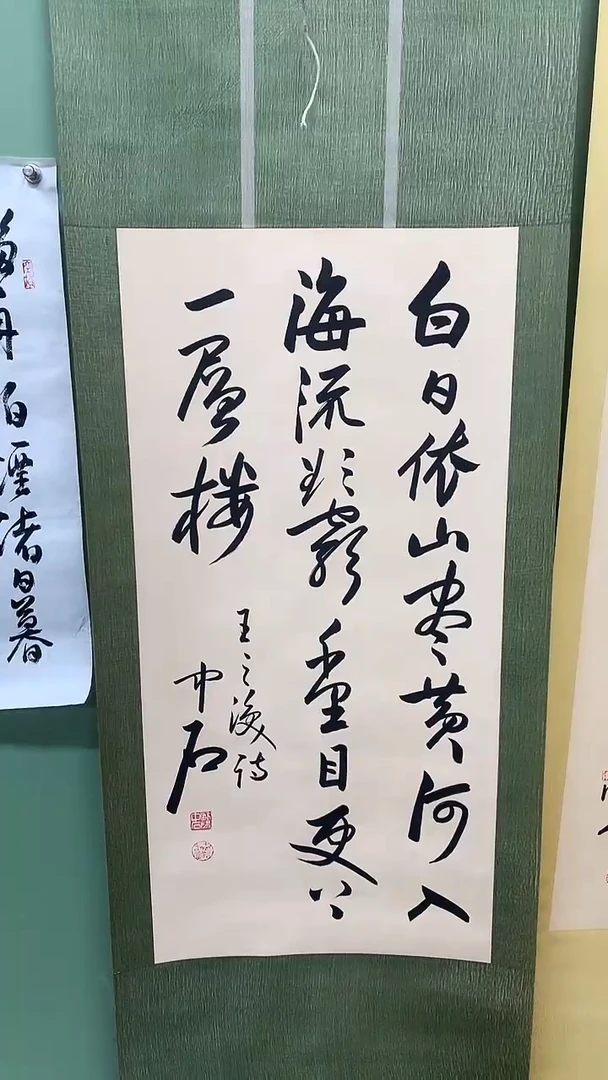 白日依山尽黄河入
海流欲穷千里目更上
一層楼
王之涣诗
中石
渚日暮